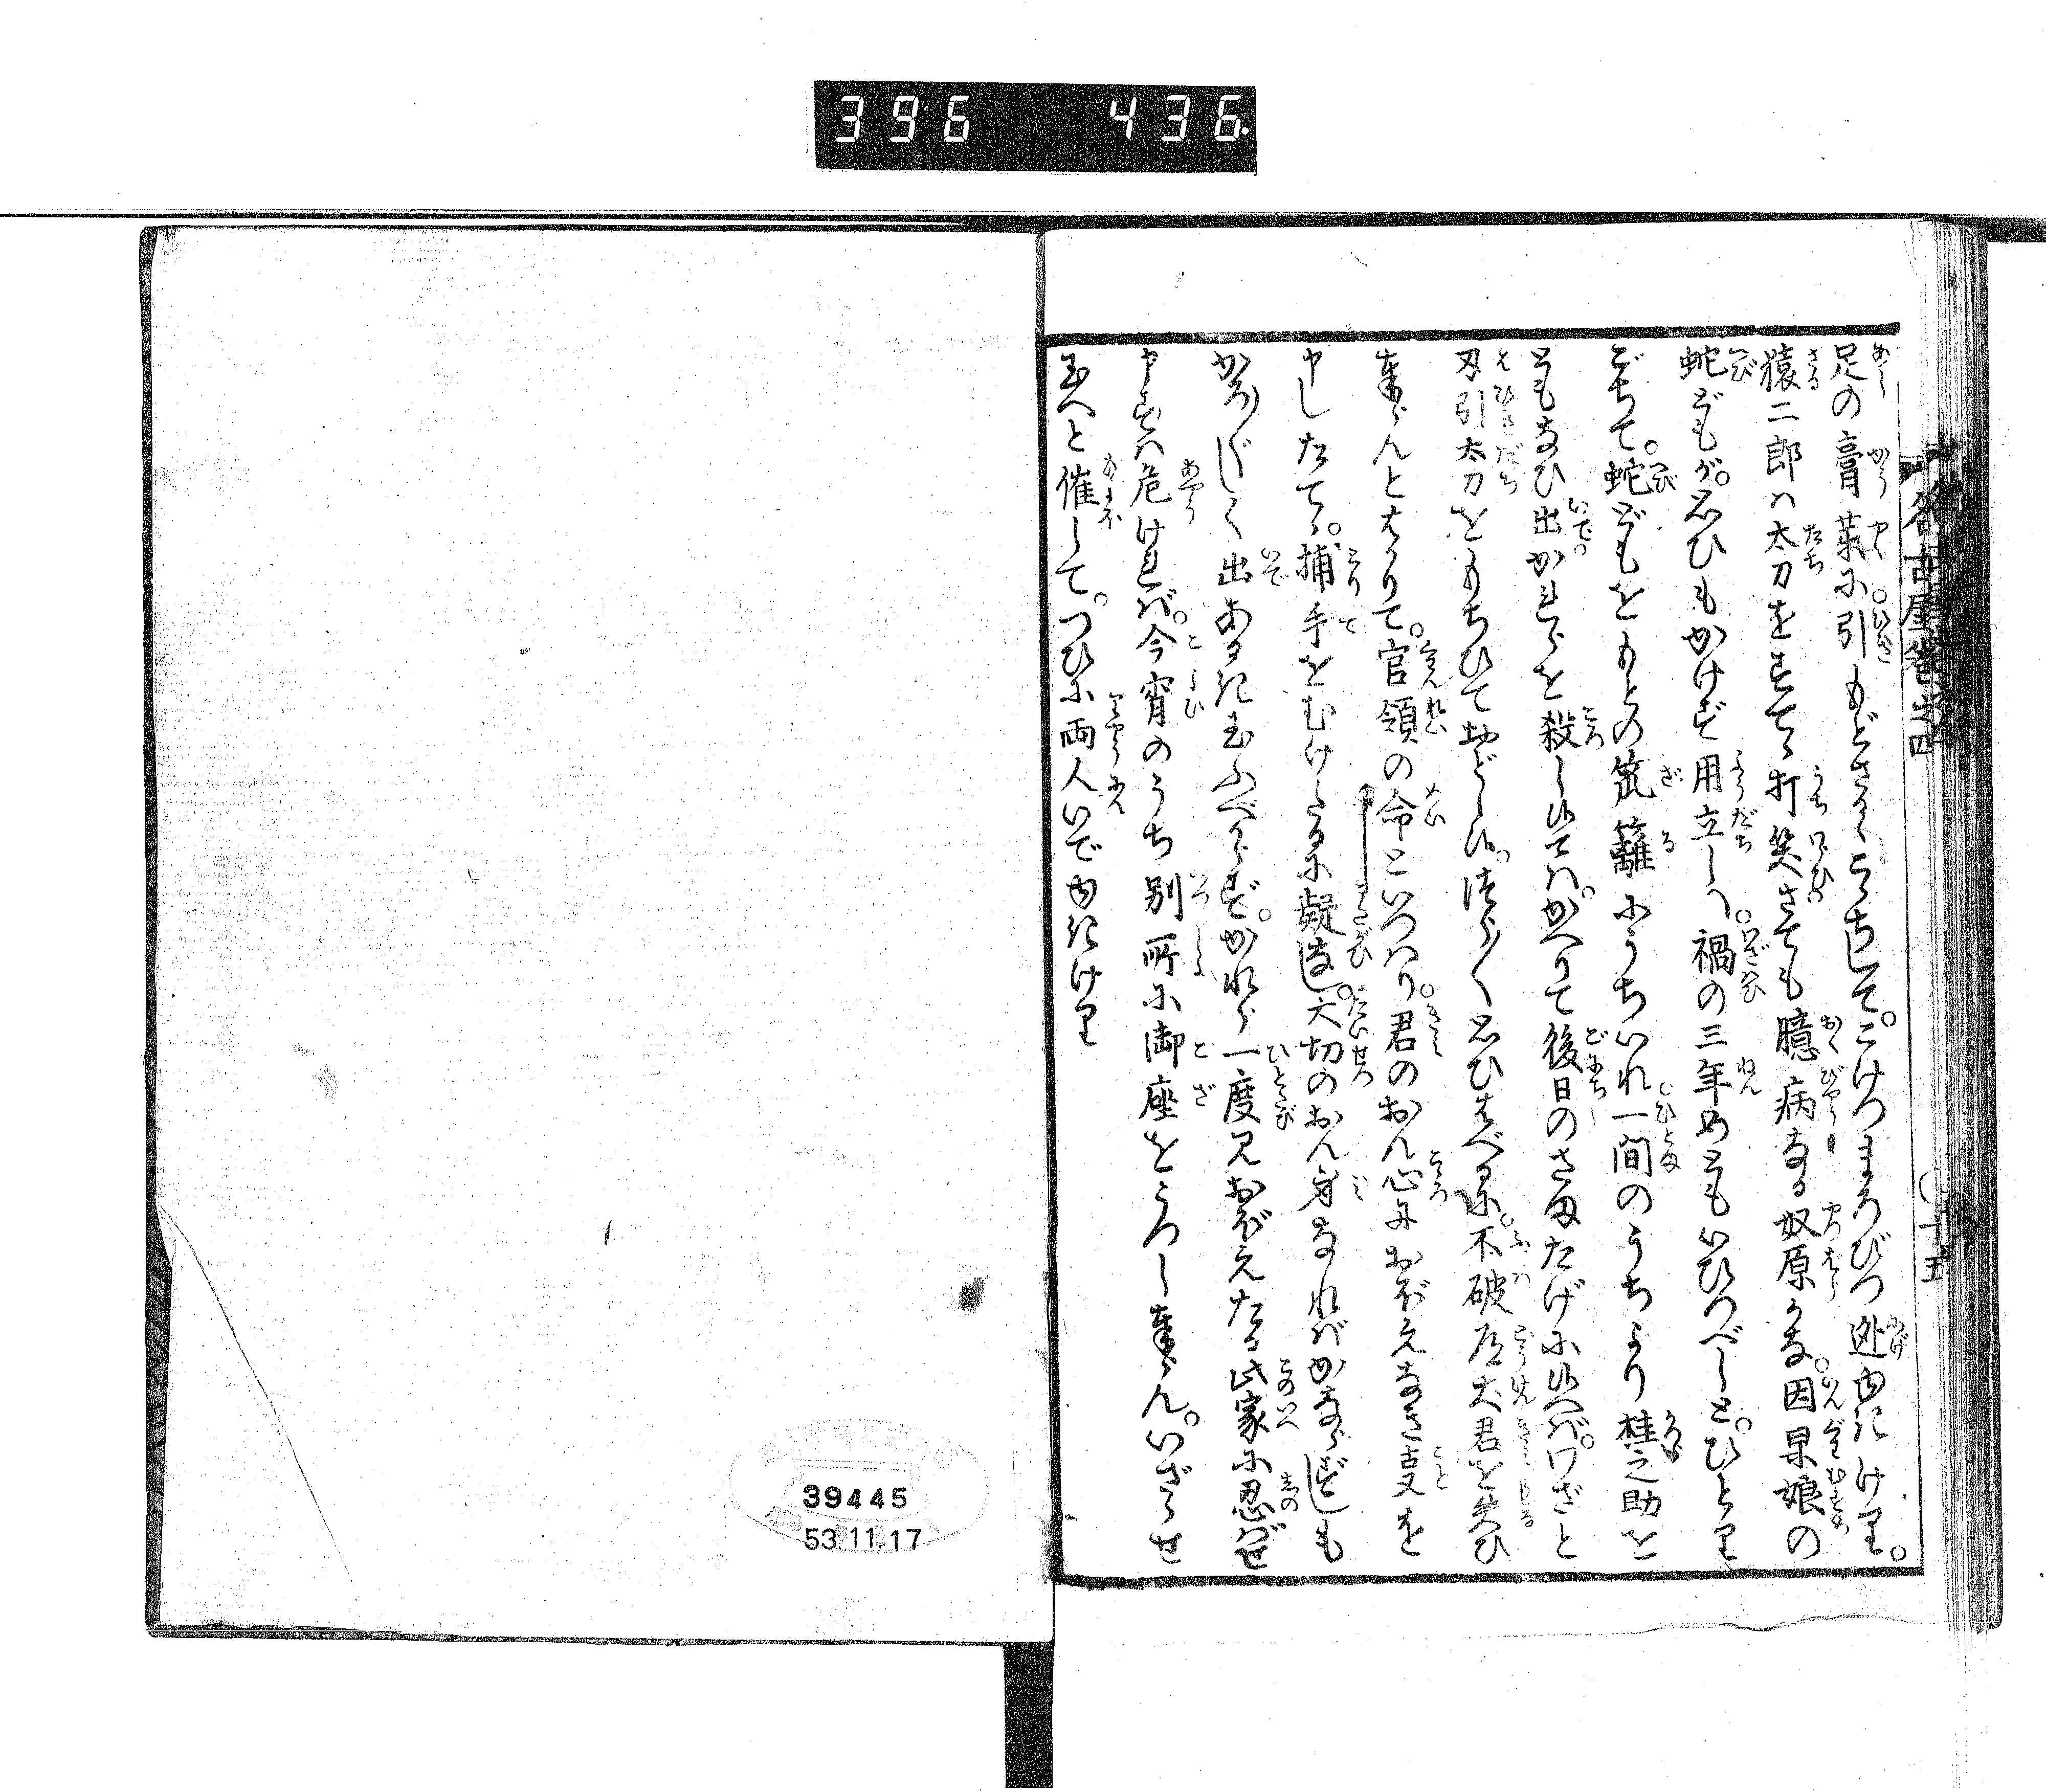 396 436
足の膏薬に引もどさるゝこゝちして。こけつまろびつ迯ゆきけり。
猿二郎ハ太刀をすてゝ打笑ひさても臆病なる奴原かな。因果娘の
蛇どもが。思ひもかけず用立しハ。禍の三年めともいひつべしと。ひとり
ごちて。蛇どもをもとの笊籬にうちいれ一間のうちより桂之助を
ともなひ出。かれらを殺し候てハ。かへりて後日のさまたげに候へバ。わざと
刃引太刀をもちひておどし候。つら〳〵思ひはべるに。不破道犬君を失ひ
奉らんとはかりて。官領の命といつハり。君のおん心におぼえなき古又を
申したてゝ。捕手をむけたるに疑なし。大切のおん身なれバかならずしも
かろ〴〵しく出あるき玉ふべからず。かれら一度見おぼえたる此家に忍ばせ
申すハ危けれバ。今宵のうち別所に御座をうつし奉らん。いざゝせ
玉へと催して。つひに両人いでゆきけり
巻之四
十五
39445
53.11.17